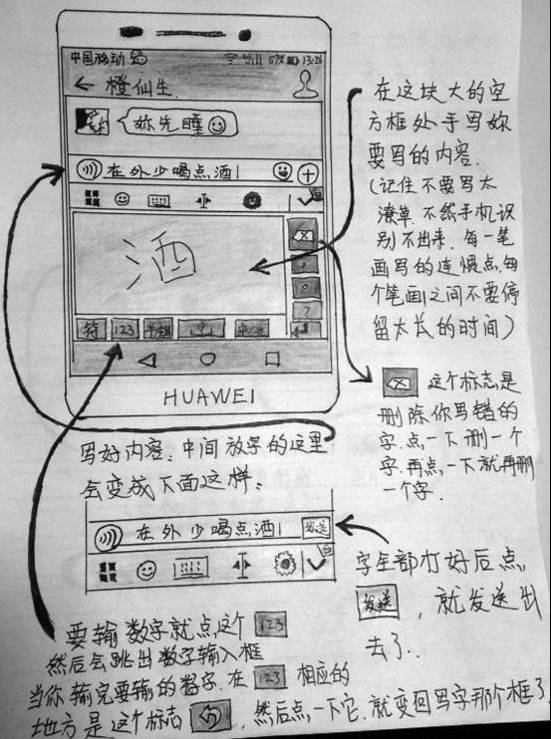 中国移动
57% 13:26
← 橙仙生
你先睡
在外少喝点酒
酒
符
123
HUAWEI
在这块大的空
方框处手写妳
要写的内容.
(记住不要写太
潦草.不然手机识
别不出来.每一笔
画写的连惯点.每
个笔画之间不要停
留太长的时间)
这个标志是
删除你写错的
字.点一下删一个
字.再点一下就再删
一个字.
写好内容.中间放字的这里
会变成下面这样.
在外少喝点酒 发送
字全部打好后点.
发送,就发送出
去了..
要输数字就点这个 123
然后会跳出数字输入框
当你输完要输的数字.在 123 相应的
地方是这个标志,然后点一下它.就变回写字那个框了